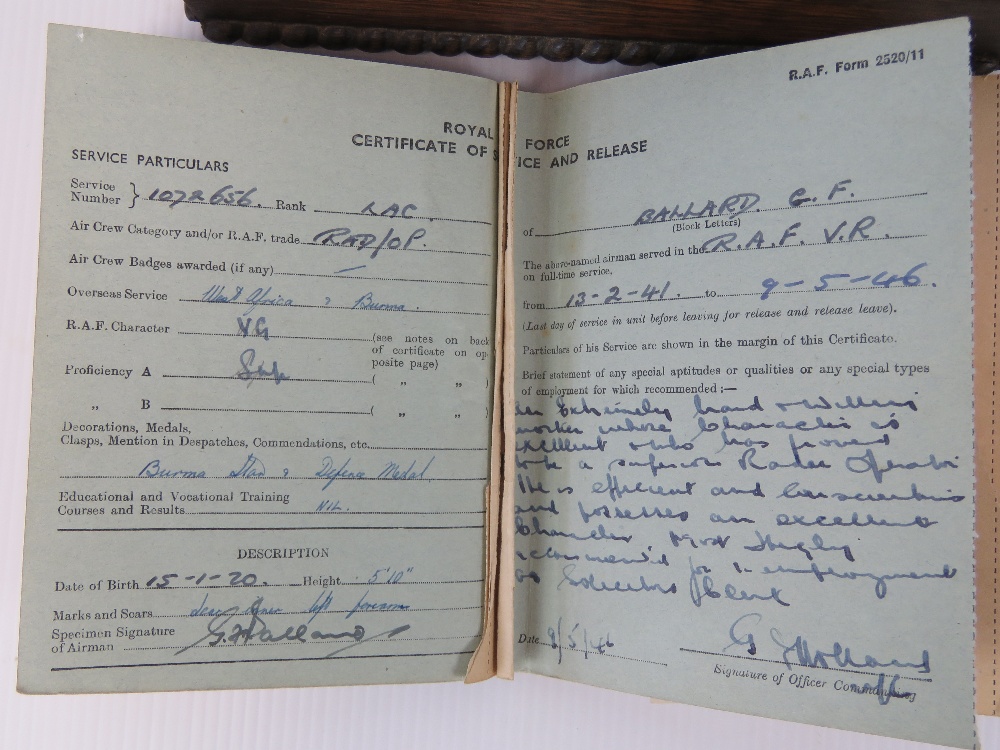 R.A.F. Form 2520/11
ROYAL FORCE
CERTIFICATE OF S ICE AND RELEASE
SERVICE PARTICULARS
Service
Number } 1072656. Rank LAC.
Air Crew Category and/or R.A.F. trade RAD/OP.
Air Crew Badges awarded (if any) —
Overseas Service West Africa & Burma.
R.A.F. Character VG (see notes on back
of certificate on op
posite page)
Proficiency A Sup ( „ „ )
„ B ( „ „ )
Decorations, Medals,
Clasps, Mention in Despatches, Commendations, etc.
Burma Star & Defence Medal
Educational and Vocational Training
Courses and Results NIL.
DESCRIPTION
Date of Birth 15-1-20. Height 5'10"
Marks and Scars left forearm
Specimen Signature
of Airman
of BALLARD. G. F.
(Block Letters)
The above-named airman served in the R.A.F. V.R.
on full-time service.
from 13-2-41. to 9-5-46.
(Last day of service in unit before leaving for release and release leave).
Particulars of his Service are shown in the margin of this Certificate.
Brief statement of any special aptitudes or qualities or any special types
of employment for which recommended :—
An Extremely hard & willing
worker whose Character is
excellent & who has proved
a superior Radar Operator
He is efficient and conscientious
and possesses an excellent
Character. Most Highly
recommended for re-employment
as Solicitors Clerk
Date 9/5/46
Signature of Officer Commanding